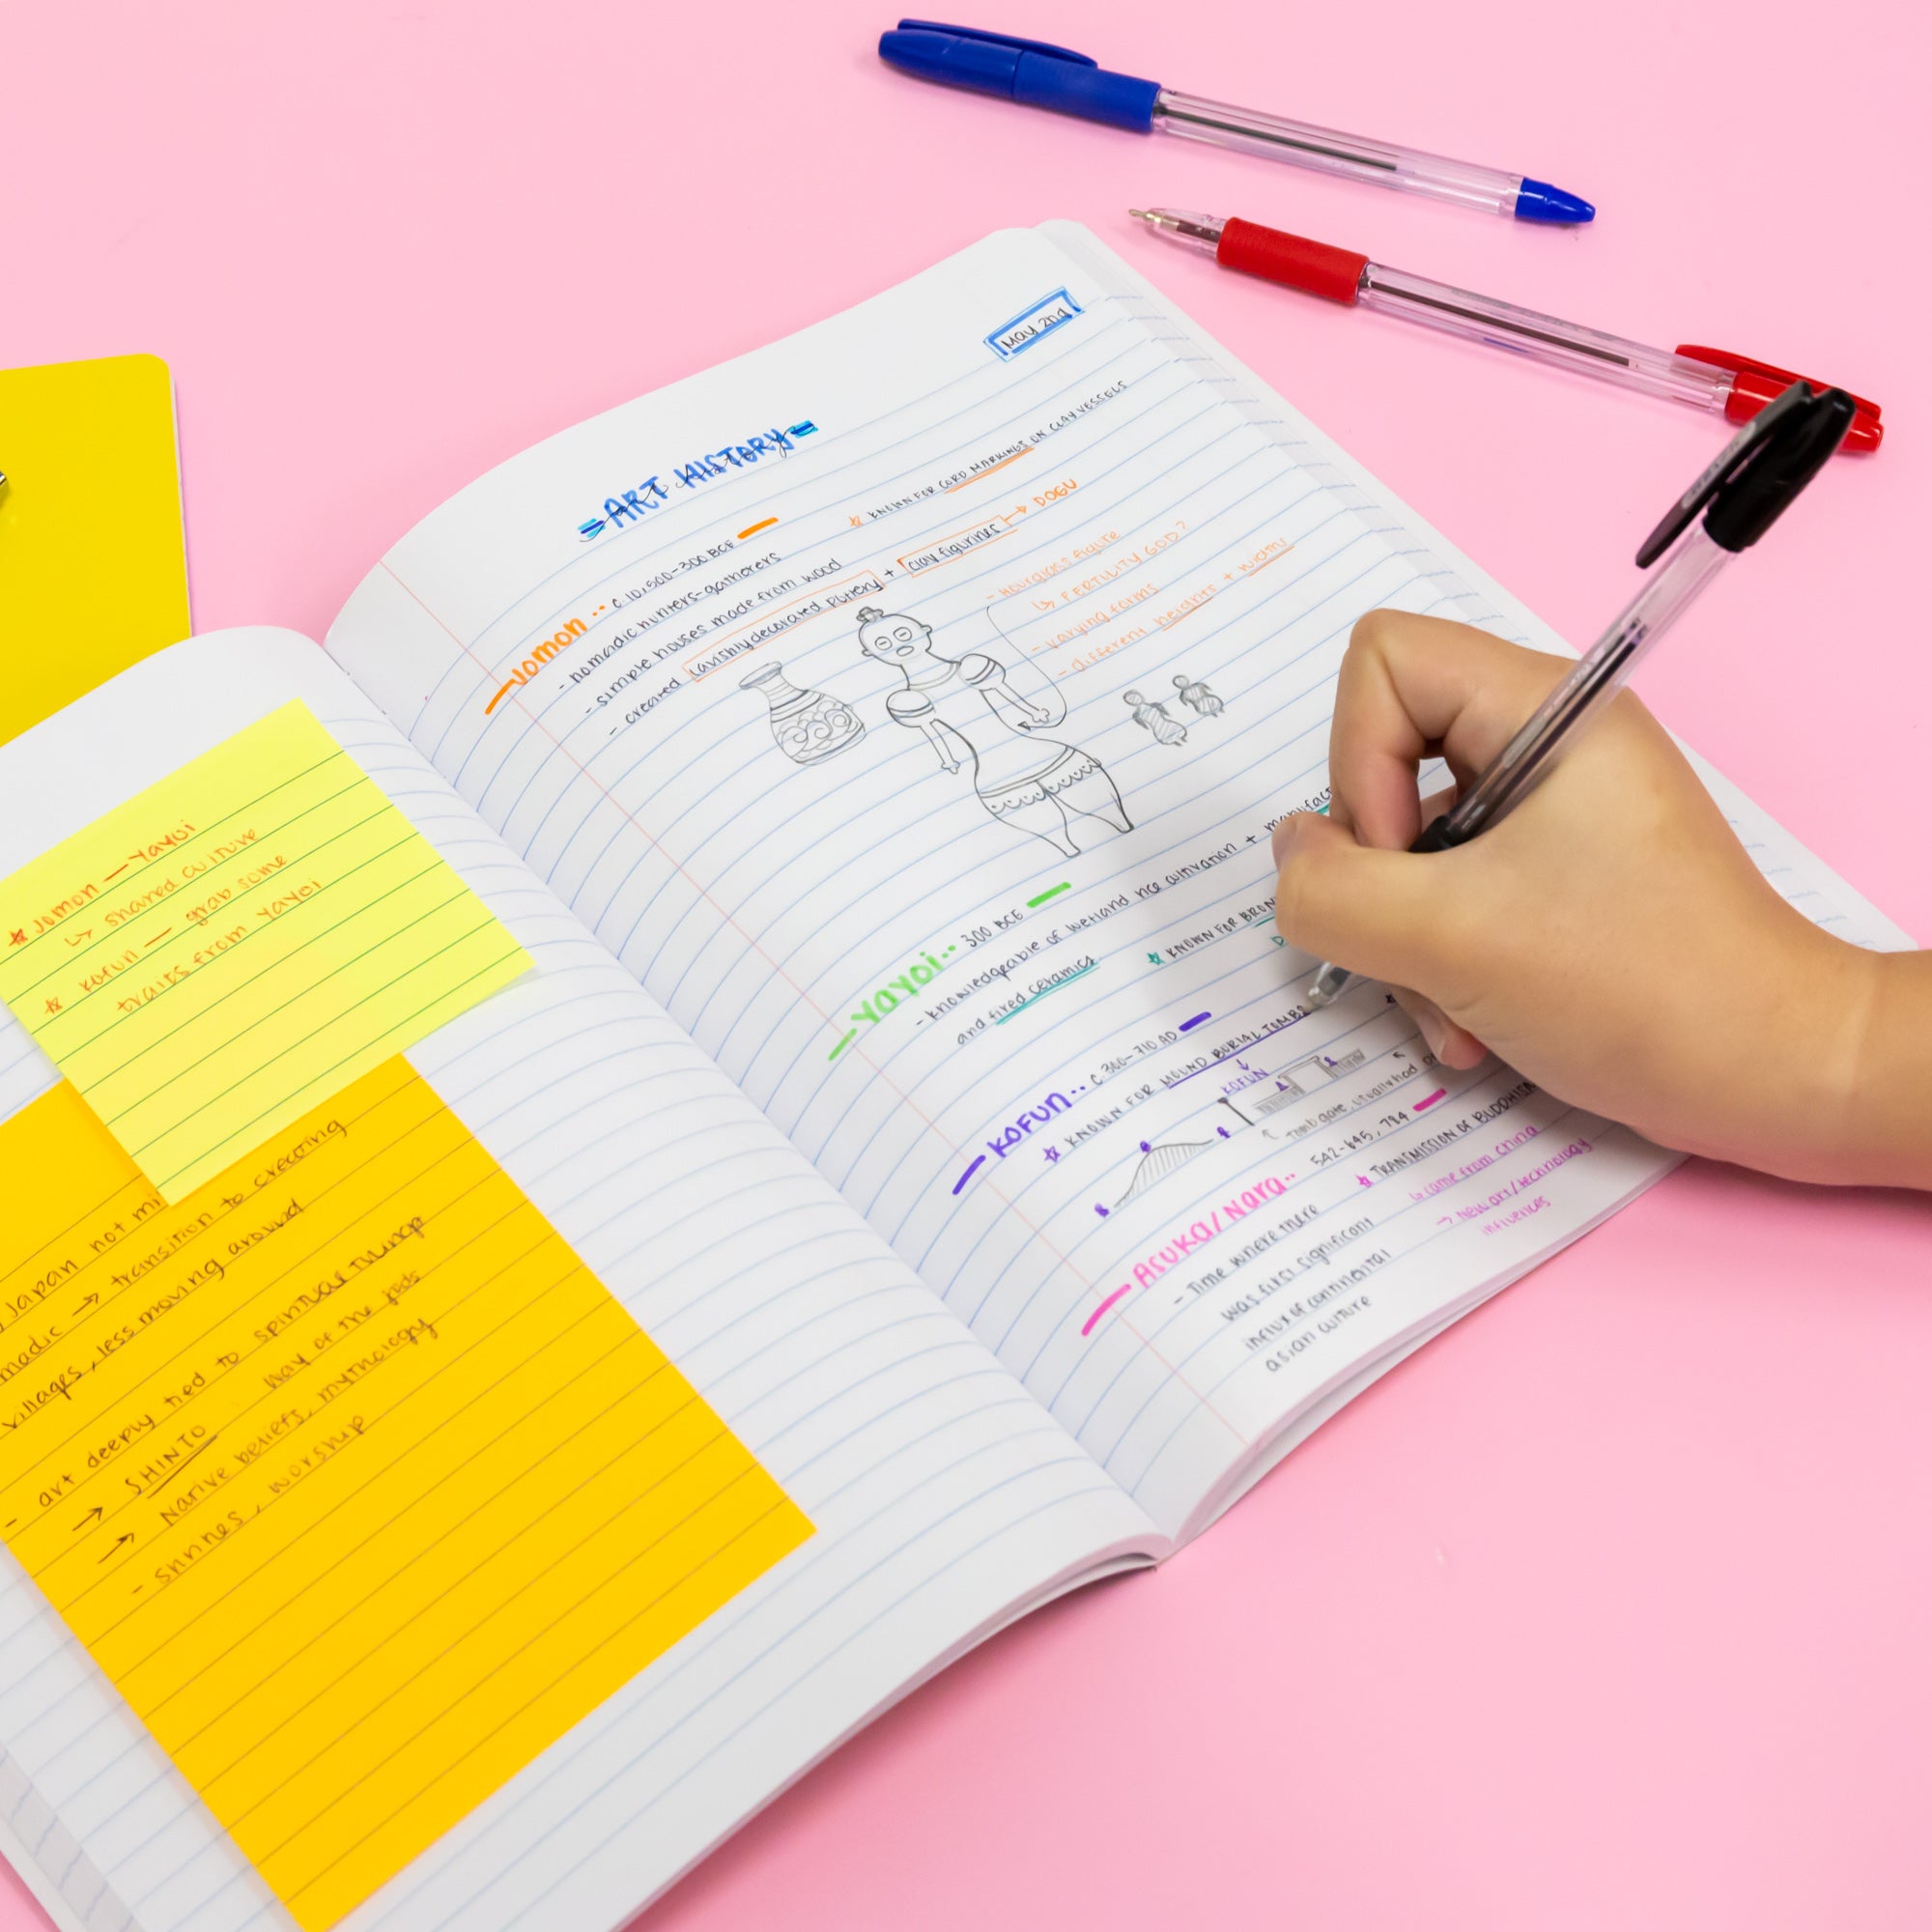 ★ Jomon — Yayoi
↳ shared culture
★ Kofun — grab some
traits from Yayoi
Japan not mi
madic → transition to creating
villages, less moving around
- art deeply tied to spiritual things
→ SHINTO way of the gods
→ Native beliefs, mythology
- shrines, worship
May 2nd
ART HISTORY
★ KNOWN FOR CORD MARKINGS ON CLAY VESSELS
Jomon •• C 10,500-300 BCE
- nomadic hunters-gatherers
- simple houses made from wood
- created lavishly decorated pottery + clay figurines → DOGU
- Hourglass figure
↳ FERTILITY GOD?
- varying forms
- different heights + widths
Yayoi •• 300 BCE
- knowledgeable of wetland rice cultivation +
and fired ceramics
★ KNOWN FOR BRON
KOFUN •• C 300-710 AD
★ KNOWN FOR MOUND BURIAL TOMBS
↓
KOFUN
Tomb gate, usually had
Asuka/Nara •• 542-645, 784
- Time where there
was first significant
influx of continental
asian culture
★ TRANSMISSION OF BUDDHISM
↳ came from China
→ New art/technology
influences